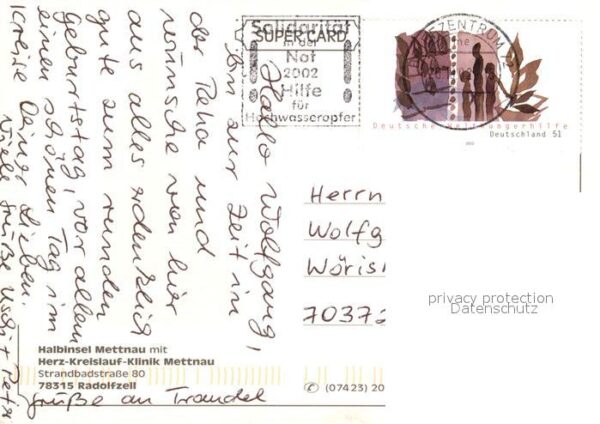 Hallo Wolfgang,
bin zur Zeit in
der Reha und
wünsche von hier
aus alles erdenklich
gute zum runden
Geburtstag, vor allem
einen schönen Tag im
Kreise Deiner Lieben.
Viele Grüße Uschi + Peter
Grüße an Traudel
Solidarität
in der
Not
2002
Hilfe
für
Hochwasseropfer
SUPER CARD
ZENTRUM
Deutsche Welthungerhilfe
Deutschland 51
Herrn
Wolfg
Wöris
70372
privacy protection
Datenschutz
Halbinsel Mettnau mit
Herz-Kreislauf-Klinik Mettnau
Strandbadstraße 80
78315 Radolfzell
(07423) 20